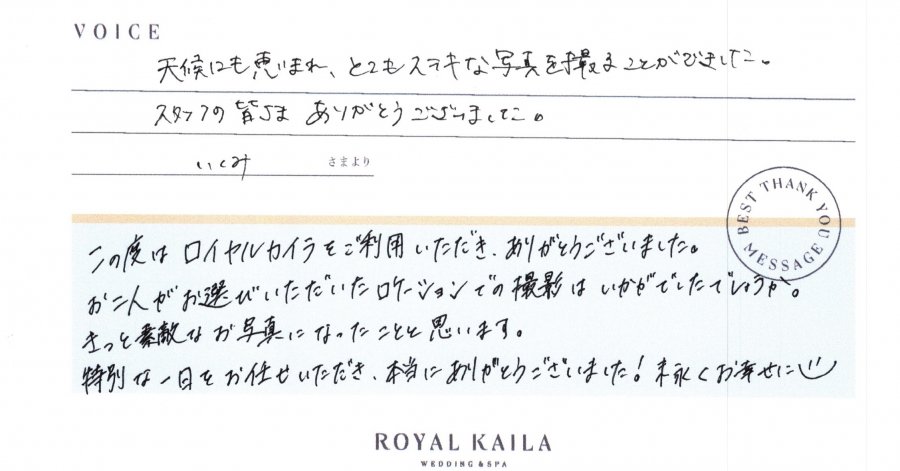 VOICE
天候にも恵まれ、とてもステキな写真を撮ることができました。
スタッフの皆さま ありがとうございました。
いくみ さまより
BEST THANK YOU MESSAGE
この度はロイヤルカイラをご利用いただき、ありがとうございました。
お二人がお選びいただいたロケーションでの撮影はいかがでしたでしょうか。
きっと素敵なお写真になったことと思います。
特別な一日をお任せいただき、本当にありがとうございました！末永くお幸せに
ROYAL KAILA
WEDDING & SPA